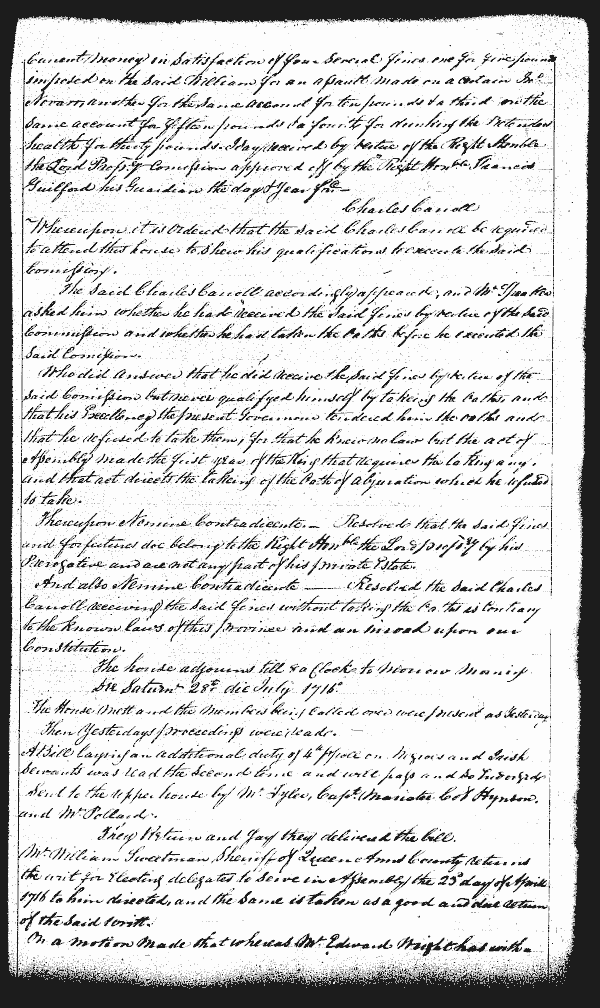 Current money in Satisfaction of four Several fines one for five pounds
imposed on the Said William for an assault made on a certain Jno
another for the same account for ten pounds & a third on the
Same account for fifteen pounds & a fourth for drinking the Pretenders
health for thirty pounds. I say received by virtue of the Right Honble
the Lord Propry Comission approved off by the Right Honble Francis
Guilford his Guardian the day & Year
Charles Carroll
Whereupon it is Ordered that the said Charles Carroll be required
to attend this house to Shew his qualifications to execute the said
Comission.
The said Charles Carroll accordingly appeared, and Mr Speaker
asked him whether he had received the Said fines by virtue of the said
Commission and whether he had taken the Oaths before he executed the
Said Comission.
Who did Answer that he did receive the said fines by virtue of the
said Comission but never qualifyed himself by taking the Oaths and
that his Excellency the present Governour tendered him the oaths and
that he refused to take them; for that he knew no law but the act of
Assembly made the first year of the King that requires the taking any.
and that act directs the taking of the Oath of Abjuration which he refused
to take.
Thereupon Nemine Contradicente — Resolved that the said fines
and forfeitures doe belong to the Right Honble the Lord Propry by his
Prerogative and are not any part of his private Estate.
And also Nemine Contradicente — Resolved the Said Charles
Carroll receiving the said fines without taking the Oaths is Contrary
to the known laws of this province and an inroad upon our
Constitution.
The house adjourns till 8 a Clock to Morrow Morning
Die Saturn 28o die July 1716
The House Mett and the Members being Called over were present as Yesterday
Then Yesterdays proceedings were read.
A Bill laying an additional duty of on Negroes and Irish
Servants was read the Second time and will pass and So Endorsed
Sent to the Upper house by Mr Tyler, Capt Mariarte Col Hynson,
and Mr Pollard.
They Return and Say they delivered the bill.
Mr William Sweatman Sheriff of Queen Anns County returns
the writ for Electing delegates to Serve in Assembly the 23d day of Aprill
1716 to him directed, and the Same is taken as a good and due return
of the Said Writt.
On a motion Made that whereas Mr Edward Wright has with-